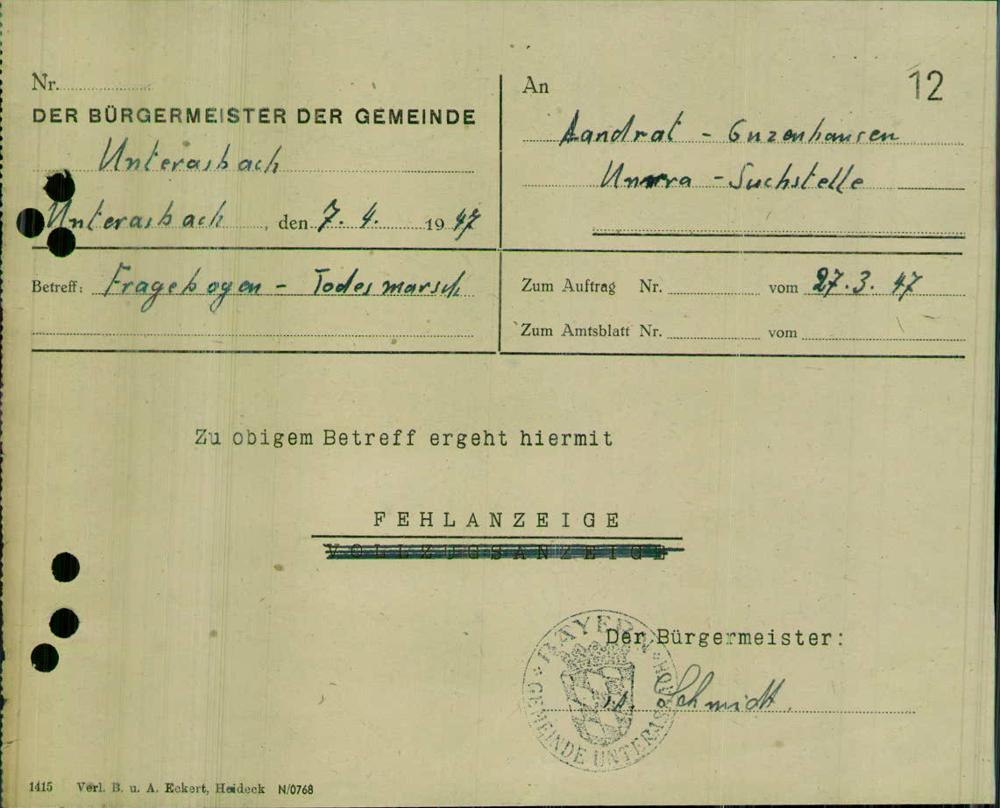 Nr.
DER BÜRGERMEISTER DER GEMEINDE
Unterasbach
Unterasbach, den 7. 4. 1947
An
12
Landrat - Gunzenhausen
Unrra - Suchstelle
Betreff: Fragebogen - Todesmarsch
Zum Auftrag Nr. vom 27.3. 47
Zum Amtsblatt Nr. vom
Zu obigem Betreff ergeht hiermit
FEHLANZEIGE
VOLLZUGSANZEIGE
Der Bürgermeister:
Schmidt.
BAYERN
GEMEINDE UNTERASBACH
1415 Verl. B. u. A. Eckert, Heideck N/0768